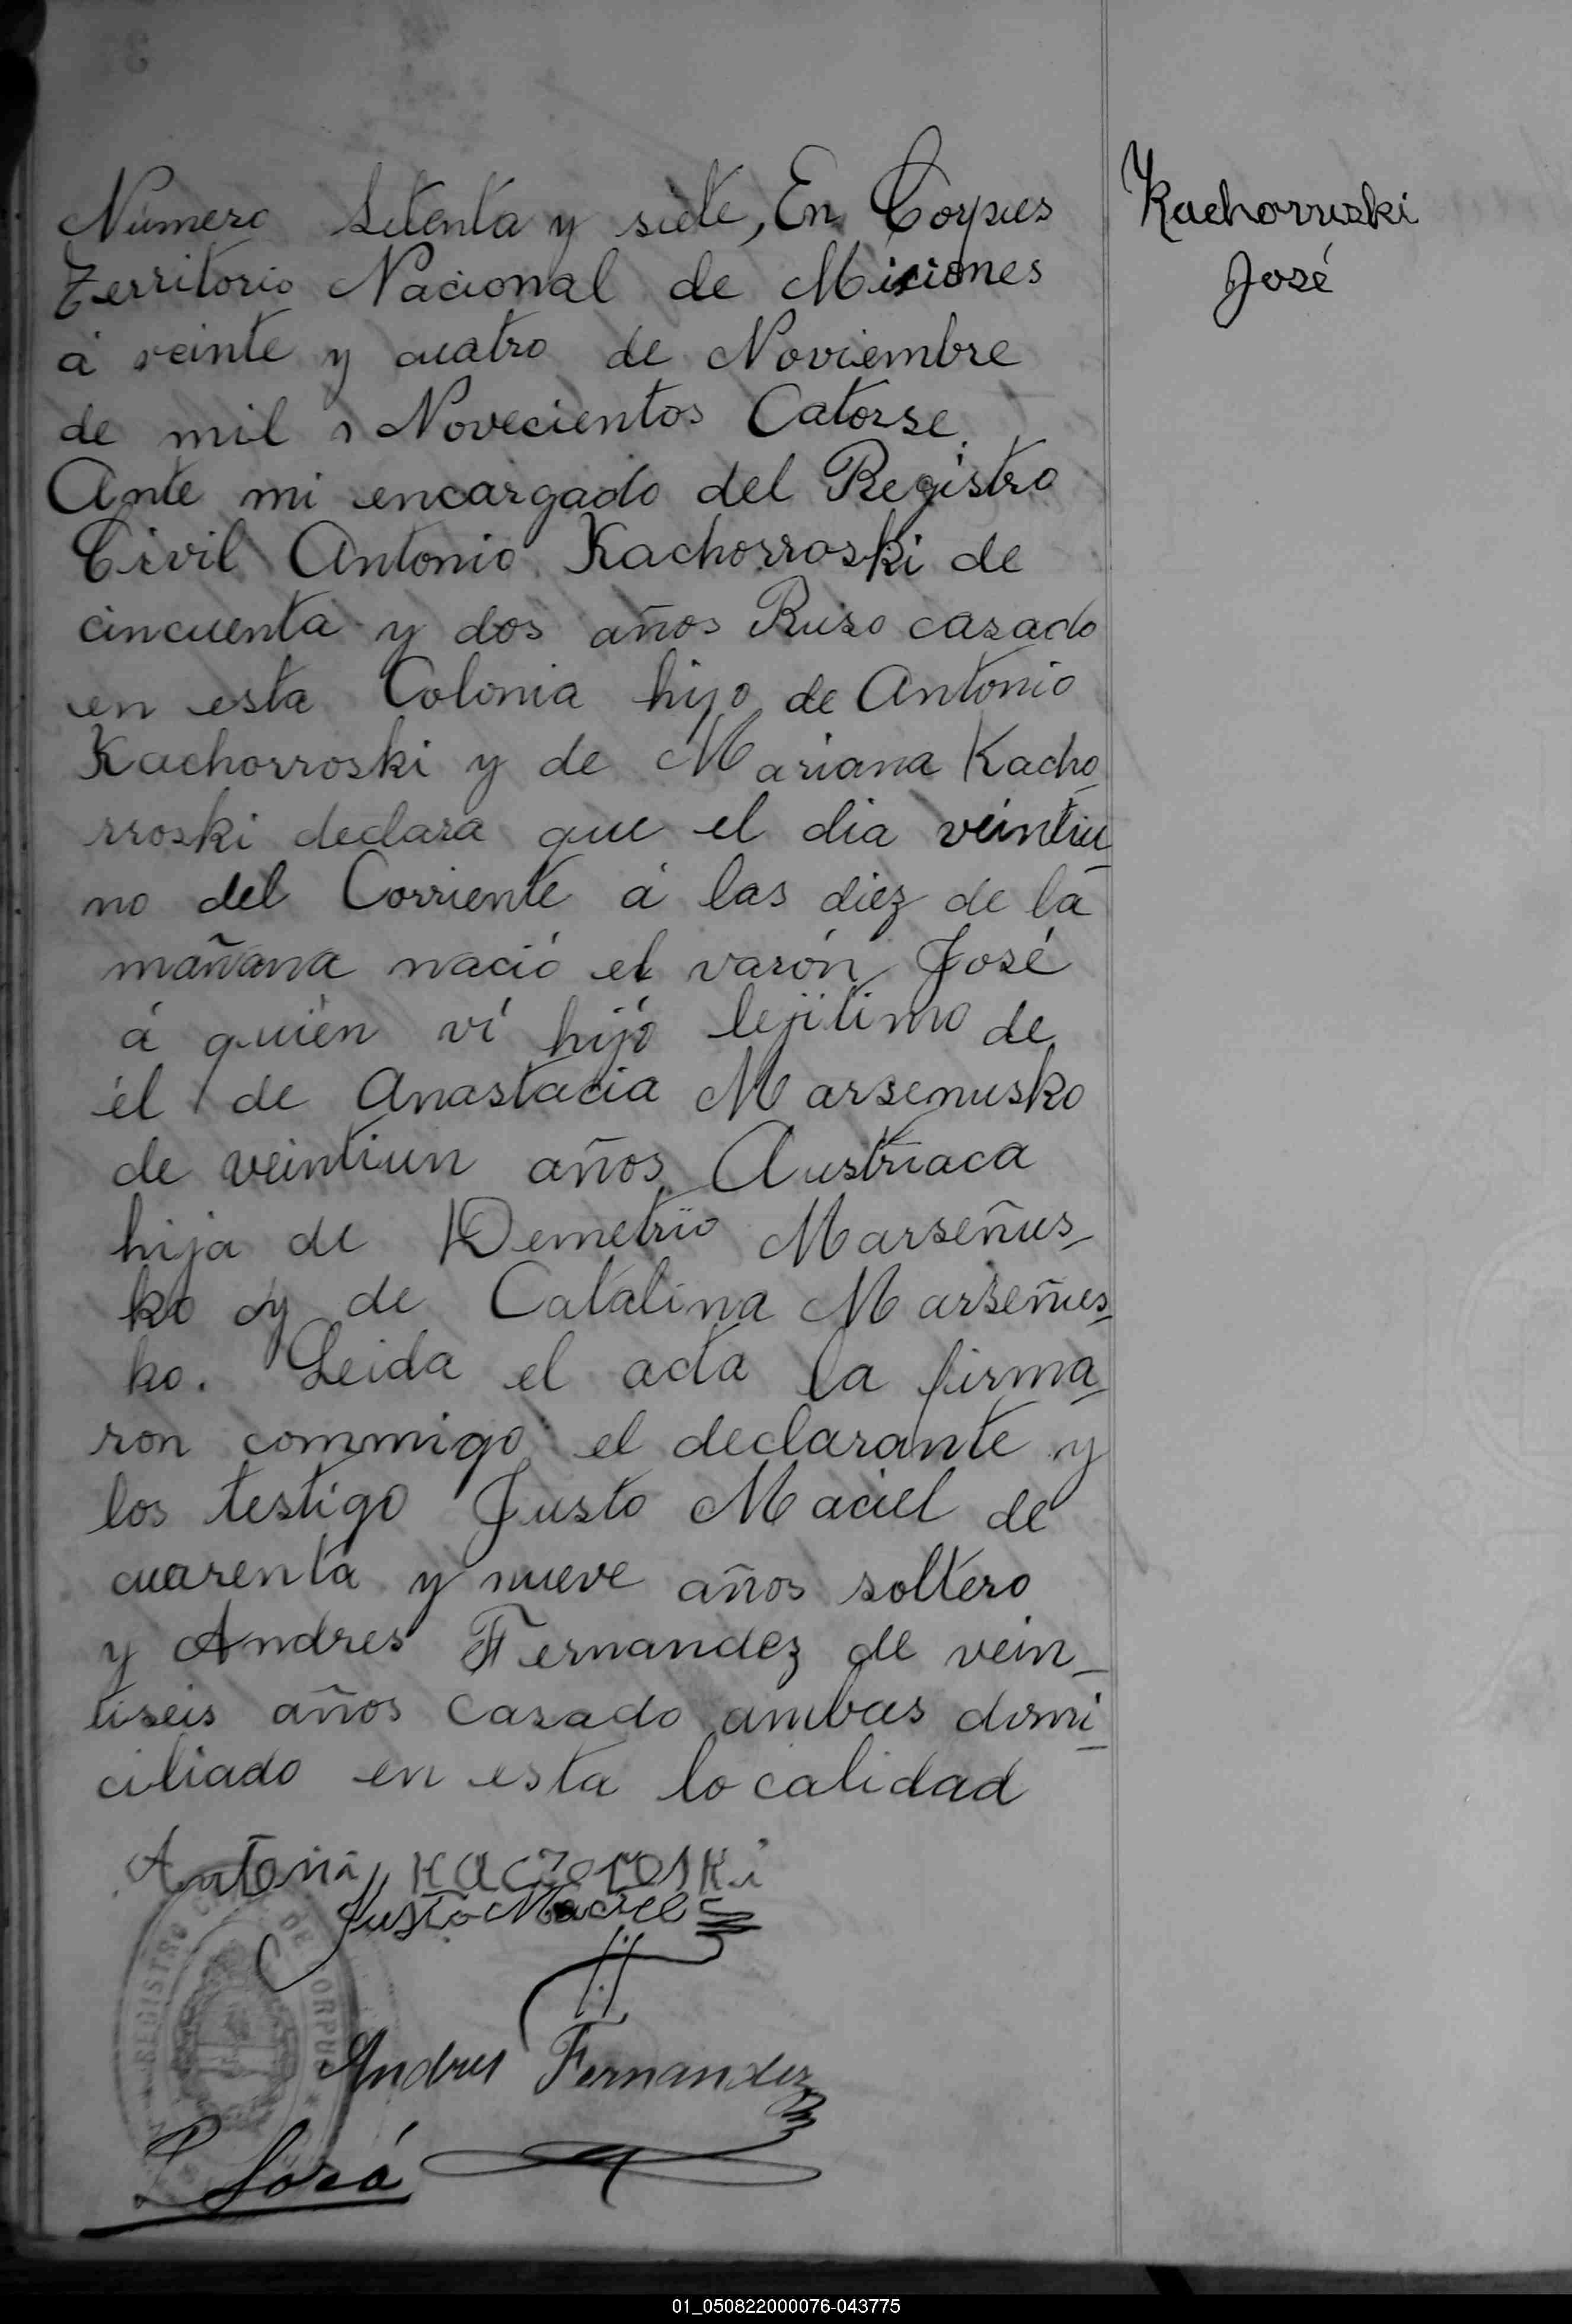 Número Setenta y siete, En Corpus
Territorio Nacional de Misiones
á veinte y cuatro de Noviembre
de mil Novecientos Catorse.
Ante mi encargado del Registro
Civil Antonio Kachorroski de
cincuenta y dos años Ruso casado
en esta Colonia hijo de Antonio
Kachorroski y de Mariana Kacho
rroski declara que el dia veintiu
no del Corriente á las diez de la
mañana nació el varón José
á quién ví hijo lejitimo de
él y de Anastacia Marsenusko
de veintiun años Austriaca
hija de Demetrio Marseñus
ko y de Catalina Marseñus
ko. Leida el acta la firma
ron commigo el declarante y
los testigo Justo Maciel de
cuarenta y nueve años soltero
y Andres Fernandez de vein
tiseis años casado ambas domi
ciliado en esta localidad
Kachorruski
José
Antoni KaCzoroski
Justo Maciel
REGISTRO DE CORPUS
Andres Fernandez
01_050822000076-043775